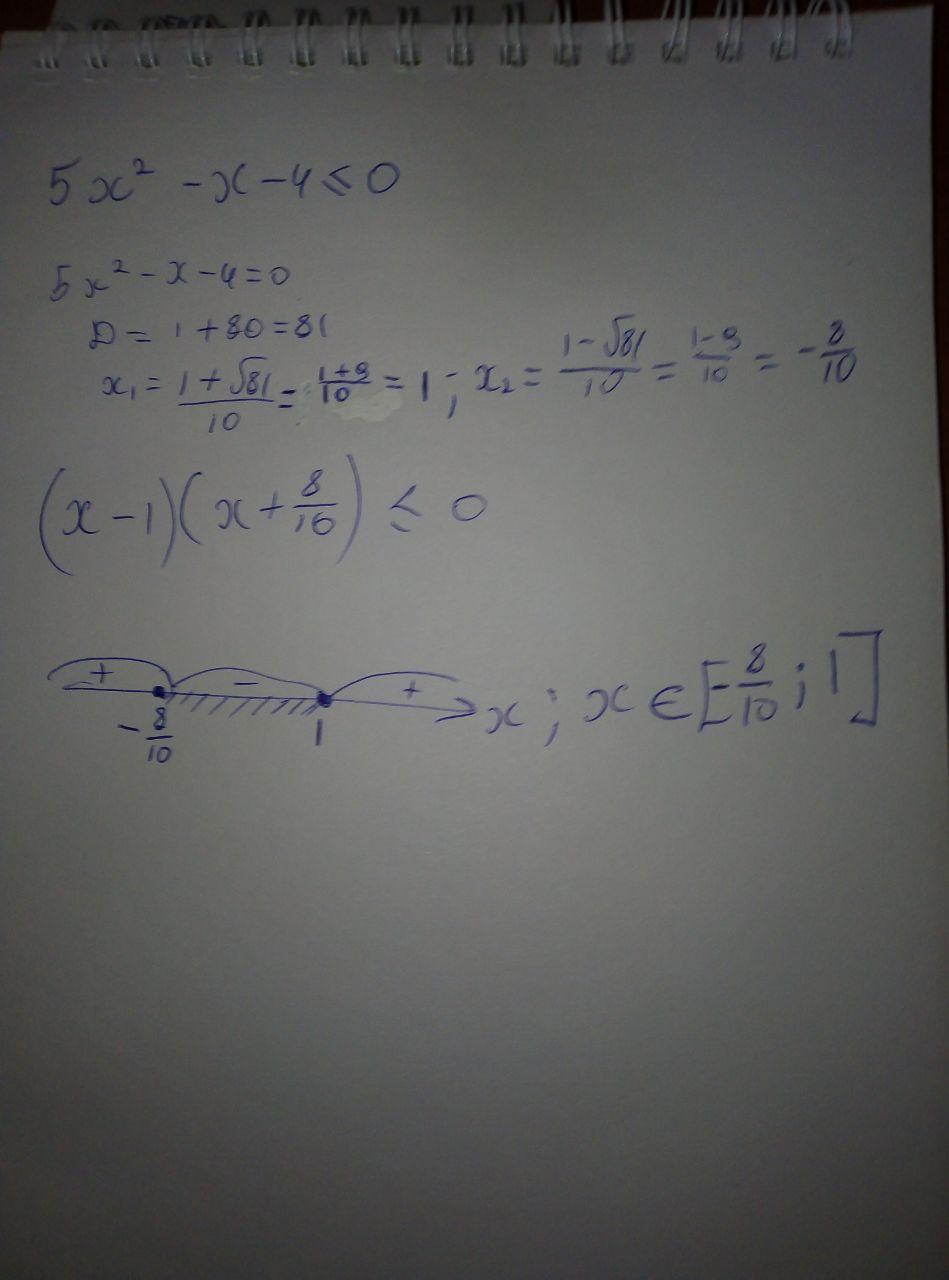 5x² - x - 4 ≤ 0
5x² - x - 4 = 0
D = 1 + 80 = 81
x₁ = (1 + √81)/10 = (1+9)/10 = 1; x₂ = (1 - √81)/10 = (1-9)/10 = -8/10
(x - 1)(x + 8/10) ≤ 0
+ - + x; x ∈ [-8/10; 1]
-8/10 1